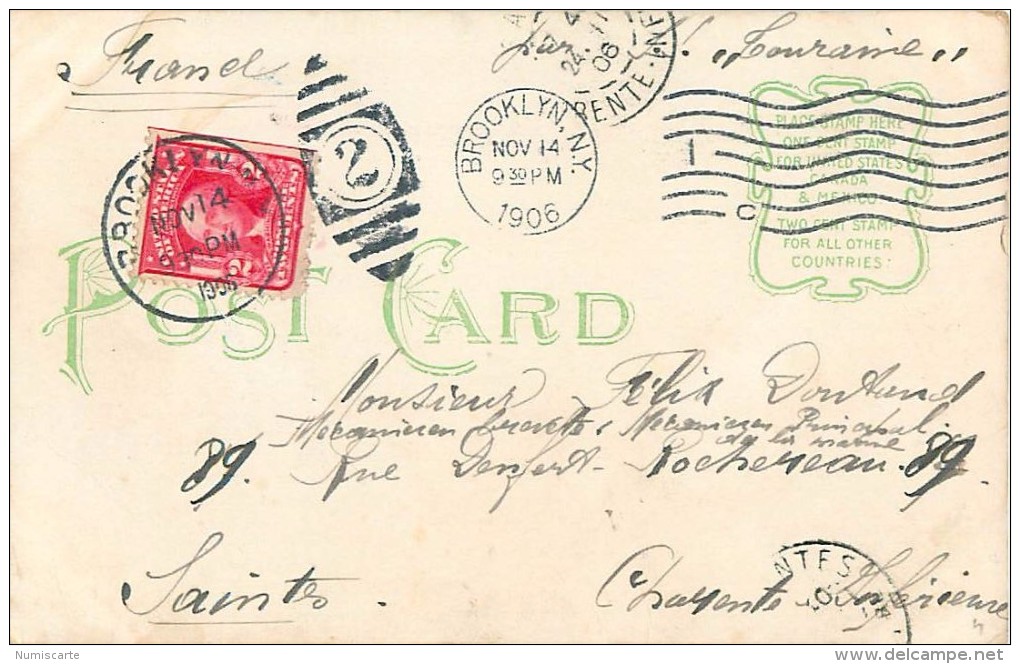 France
par "Touraine"
24 -11
06
ENTE - INF
BROOKLYN, N.Y.
NOV 14
9 30 PM
1906
1
C
PLACE STAMP HERE
ONE CENT STAMP
FOR UNITED STATES
CANADA
& MEXICO
TWO CENT STAMP
FOR ALL OTHER
COUNTRIES.
2
BROOKLYN
NOV 14
9 30 PM
1906
POST CARD
Monsieur Félix
Mécanicien breveté, Mécanicien Principal
de la marine
89. Rue Denfert-Rochereau. 89.
Saintes.
Charente Inférieure
NTES
Numiscarte
www.delcampe.net